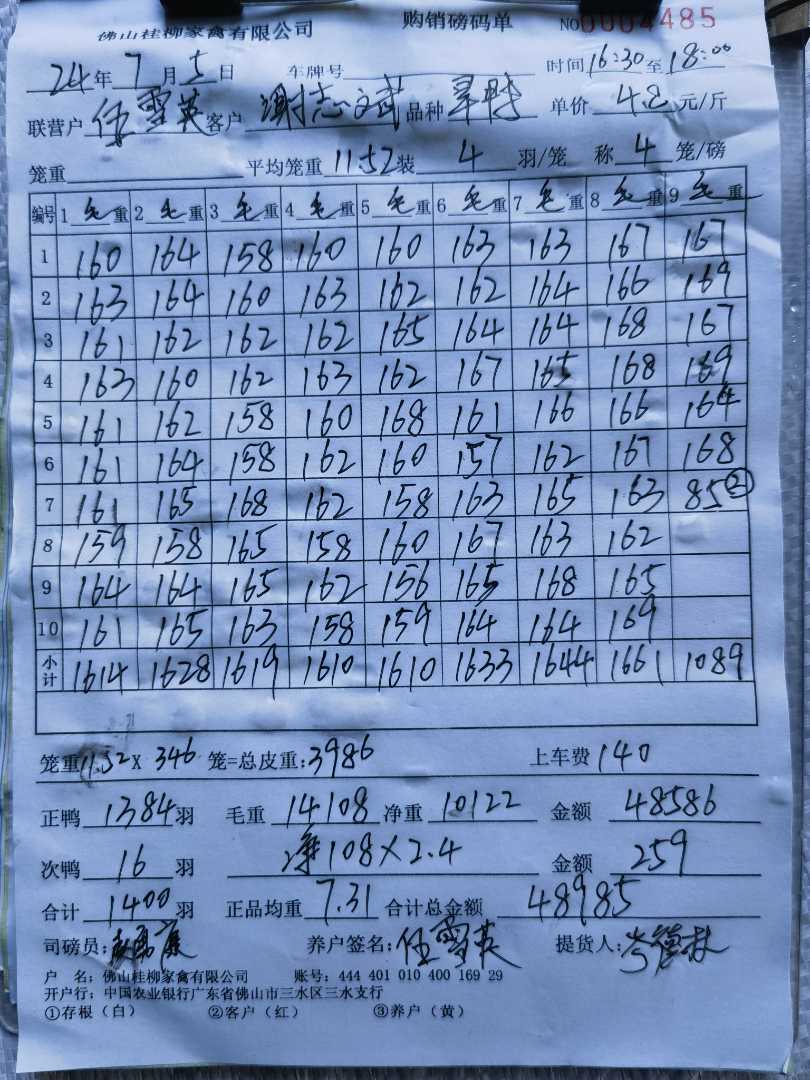 佛山桂柳家禽有限公司 购销磅码单 NO 0004485
24年7月5日 车牌号 时间16:30至18:00
联营户 任雪英 客户 谢志斌 品种 单价 4.8 元/斤
笼重 平均笼重 11.52 装 4 羽/笼 称 4 笼/磅
编号 1 毛 重 2 毛 重 3 毛 重 4 毛 重 5 毛 重 6 毛 重 7 毛 重 8 毛 重 9 毛 重
1 160 164 158 160 160 163 163 167 167
2 163 164 160 163 162 162 164 166 169
3 161 162 162 162 165 164 164 168 167
4 163 160 162 163 162 167 165 168 169
5 161 162 158 160 168 161 166 166 164
6 161 164 158 162 160 157 162 167 168
7 161 165 168 162 158 163 165 163 85②
8 159 158 165 158 160 167 163 162
9 164 164 165 162 156 165 168 165
10 161 165 163 158 159 164 164 169
小计 1614 1628 1619 1610 1610 1633 1644 1661 1089
笼重 11.52 X 346 笼=总皮重:3986 上车费 140
正鸭 1384 羽 毛重 14108 净重 10122 金额 48586
次鸭 16 羽 净108×2.4 金额 259
合计 1400 羽 正品均重 7.31 合计总金额 48985
司磅员: 养户签名:任雪英 提货人:
户 名:佛山桂柳家禽有限公司 账号:444 401 010 400 169 29
开户行:中国农业银行广东省佛山市三水区三水支行
①存根(白) ②客户(红) ③养户(黄)